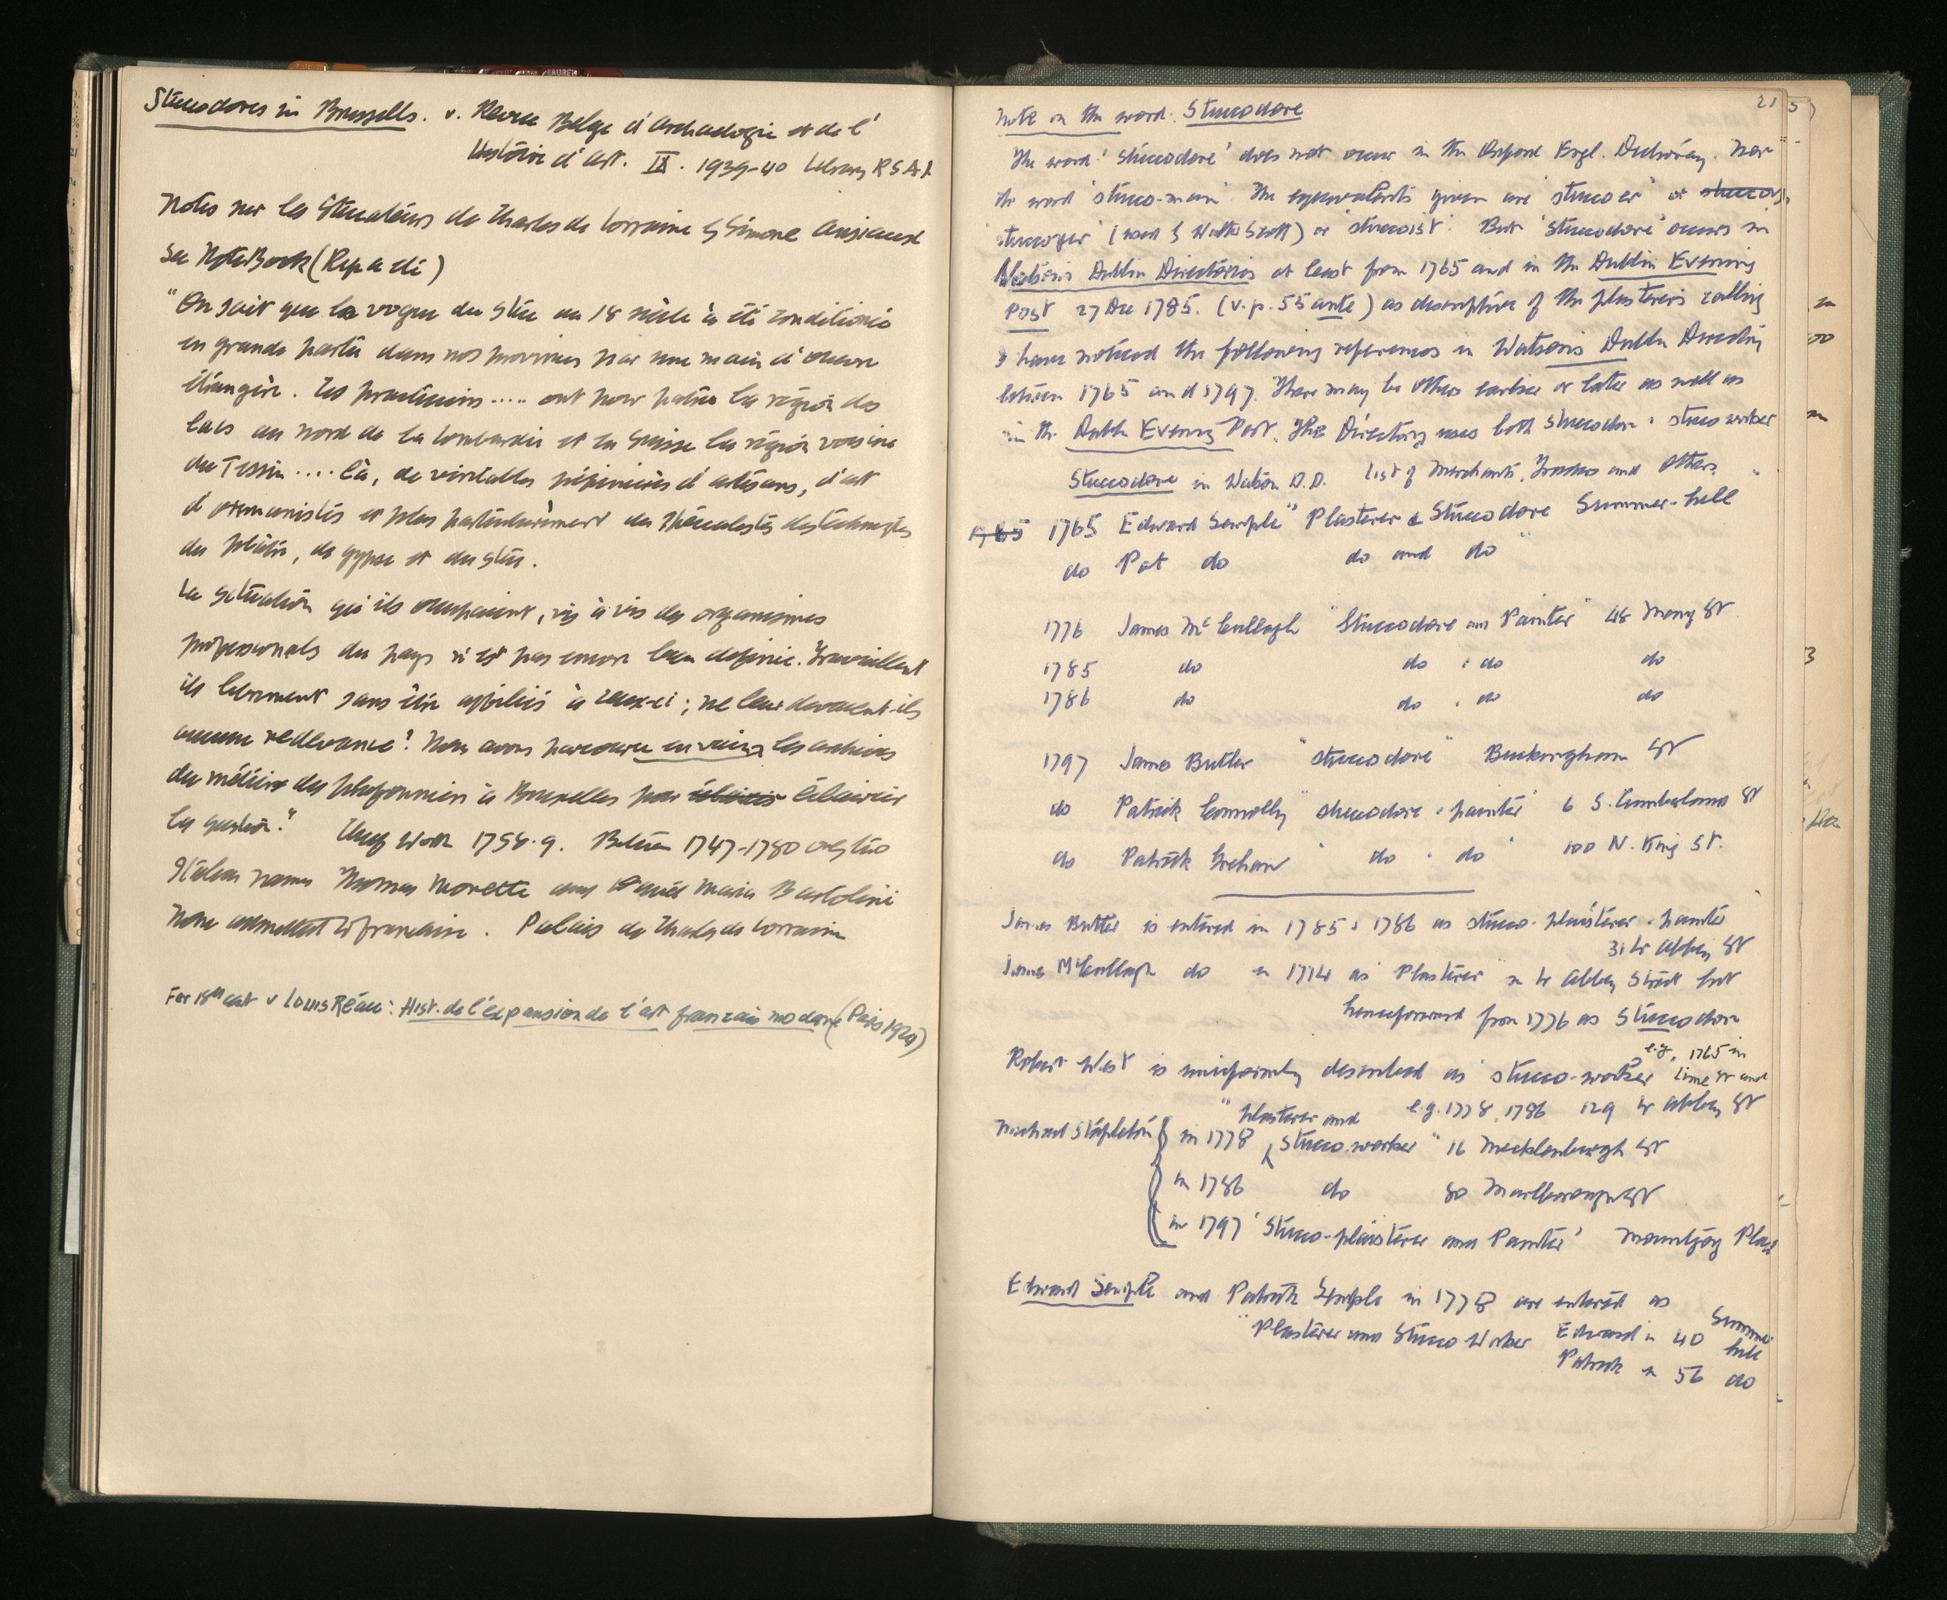 Stuccodores in Brussells. v. Revue Belge d'archaeologie et de l'
Histoire d'art. IX. 1939-40 Library RSAI
Notes sur les Stucateurs de Charles de Lorraine by Simone Ansiaux
See Note Book
"On sait que la vogue du stuc au 18 siècle à été conditionée
en grande partie dans nos provinces par une main d'oeuvre
étrangère. Les practiciens ..... ont pour patrie la région des
lacs au nord de la Lombardie et en Suisse la région voisine
du Tessin .... Là, de veritables pépinières d'artisans, d'art
d'ornemanistes et plus particulièrement des spécialistes des techniques
du plâtre, de gypse et du stuc.
La situation qu'ils occupaient, vis à vis des organismes
professionels du pays n'est pas encore bien definie. Travaillent
ils librement sans être affiliés à ceux-ci; ne leur devaient-ils
aucune redevance? Nous avons parcouru en vain les archives
du métier des plafonniers à Bruxelles pour eclairer éclairer
la question." They work 1758-9. Between 1747-1780 only two
Italian names Thomas Moretti and Daniel Maria Bartolini
Palais de Charles de Lorraine
For 18th cent v Louis Réau: Hist. de l'expansion de l'art francais moderne (Paris
21
Note on the word: Stuccodore
The word 'stuccodore' does not occur in the Oxford Engl. Dictionary. Nor
the word 'stucco-man'. The equivalents given are 'stuccoer' or
'stuccoyer' (used by Walter Scott) or 'stuccoist'. But 'stuccodore' occurs in
Watson's Dublin Directories at least from 1765 and in the Dublin Evening
Post 27 Dec 1785. (v.p. 55 ante) as descriptive of the plasterer's calling
I have noticed the following references in Watson's Dublin Directory
between 1765 and 1797. There may be others earlier or later as well as
in the Dublin Evening Post. The Directory uses both stuccodore & stucco worker
Stuccodore in Watson D.D. List of Merchants, Traders and Others.
1765 1765 Edward Semple "Plasterer & Stuccodore Summer-hill
do Pat do do and do"
1776 James McCullagh "Stuccodore and Painter" 48 Henry St
1785 do do & do do
1786 do do & do do
1797 James Butler "stuccodore" Buckingham St
do Patrick Connolly "stuccodore & painter" 6 S. Cumberland St
do Patrick Grehan " do & do " 100 N. King St.
James Butler is entered in 1785 & 1786 as stucco-plaisterer & painter
31 Lr Abbey St
James McCullagh do in 1774 as 'Plasterer' in Lr Abbey Street but
henceforward from 1776 as Stuccodore
Robert West is uniformly described as 'stucco-worker' e.g. 1765 in
Lime St and
e.g. 1778, 1786 129 Lr Abbey St
Michael Stapleton in 1778 "Plasterer and Stucco-worker" 16 Mecklenburgh St
in 1786 do 80 Marlborough St
in 1797 'Stucco-plaisterer and Painter' Mountjoy Place
Edward Semple and Patrick Semple in 1778 are entered as
"Plasterer and Stucco Worker Edward in 40 Summer hill
Patrick in 56 do